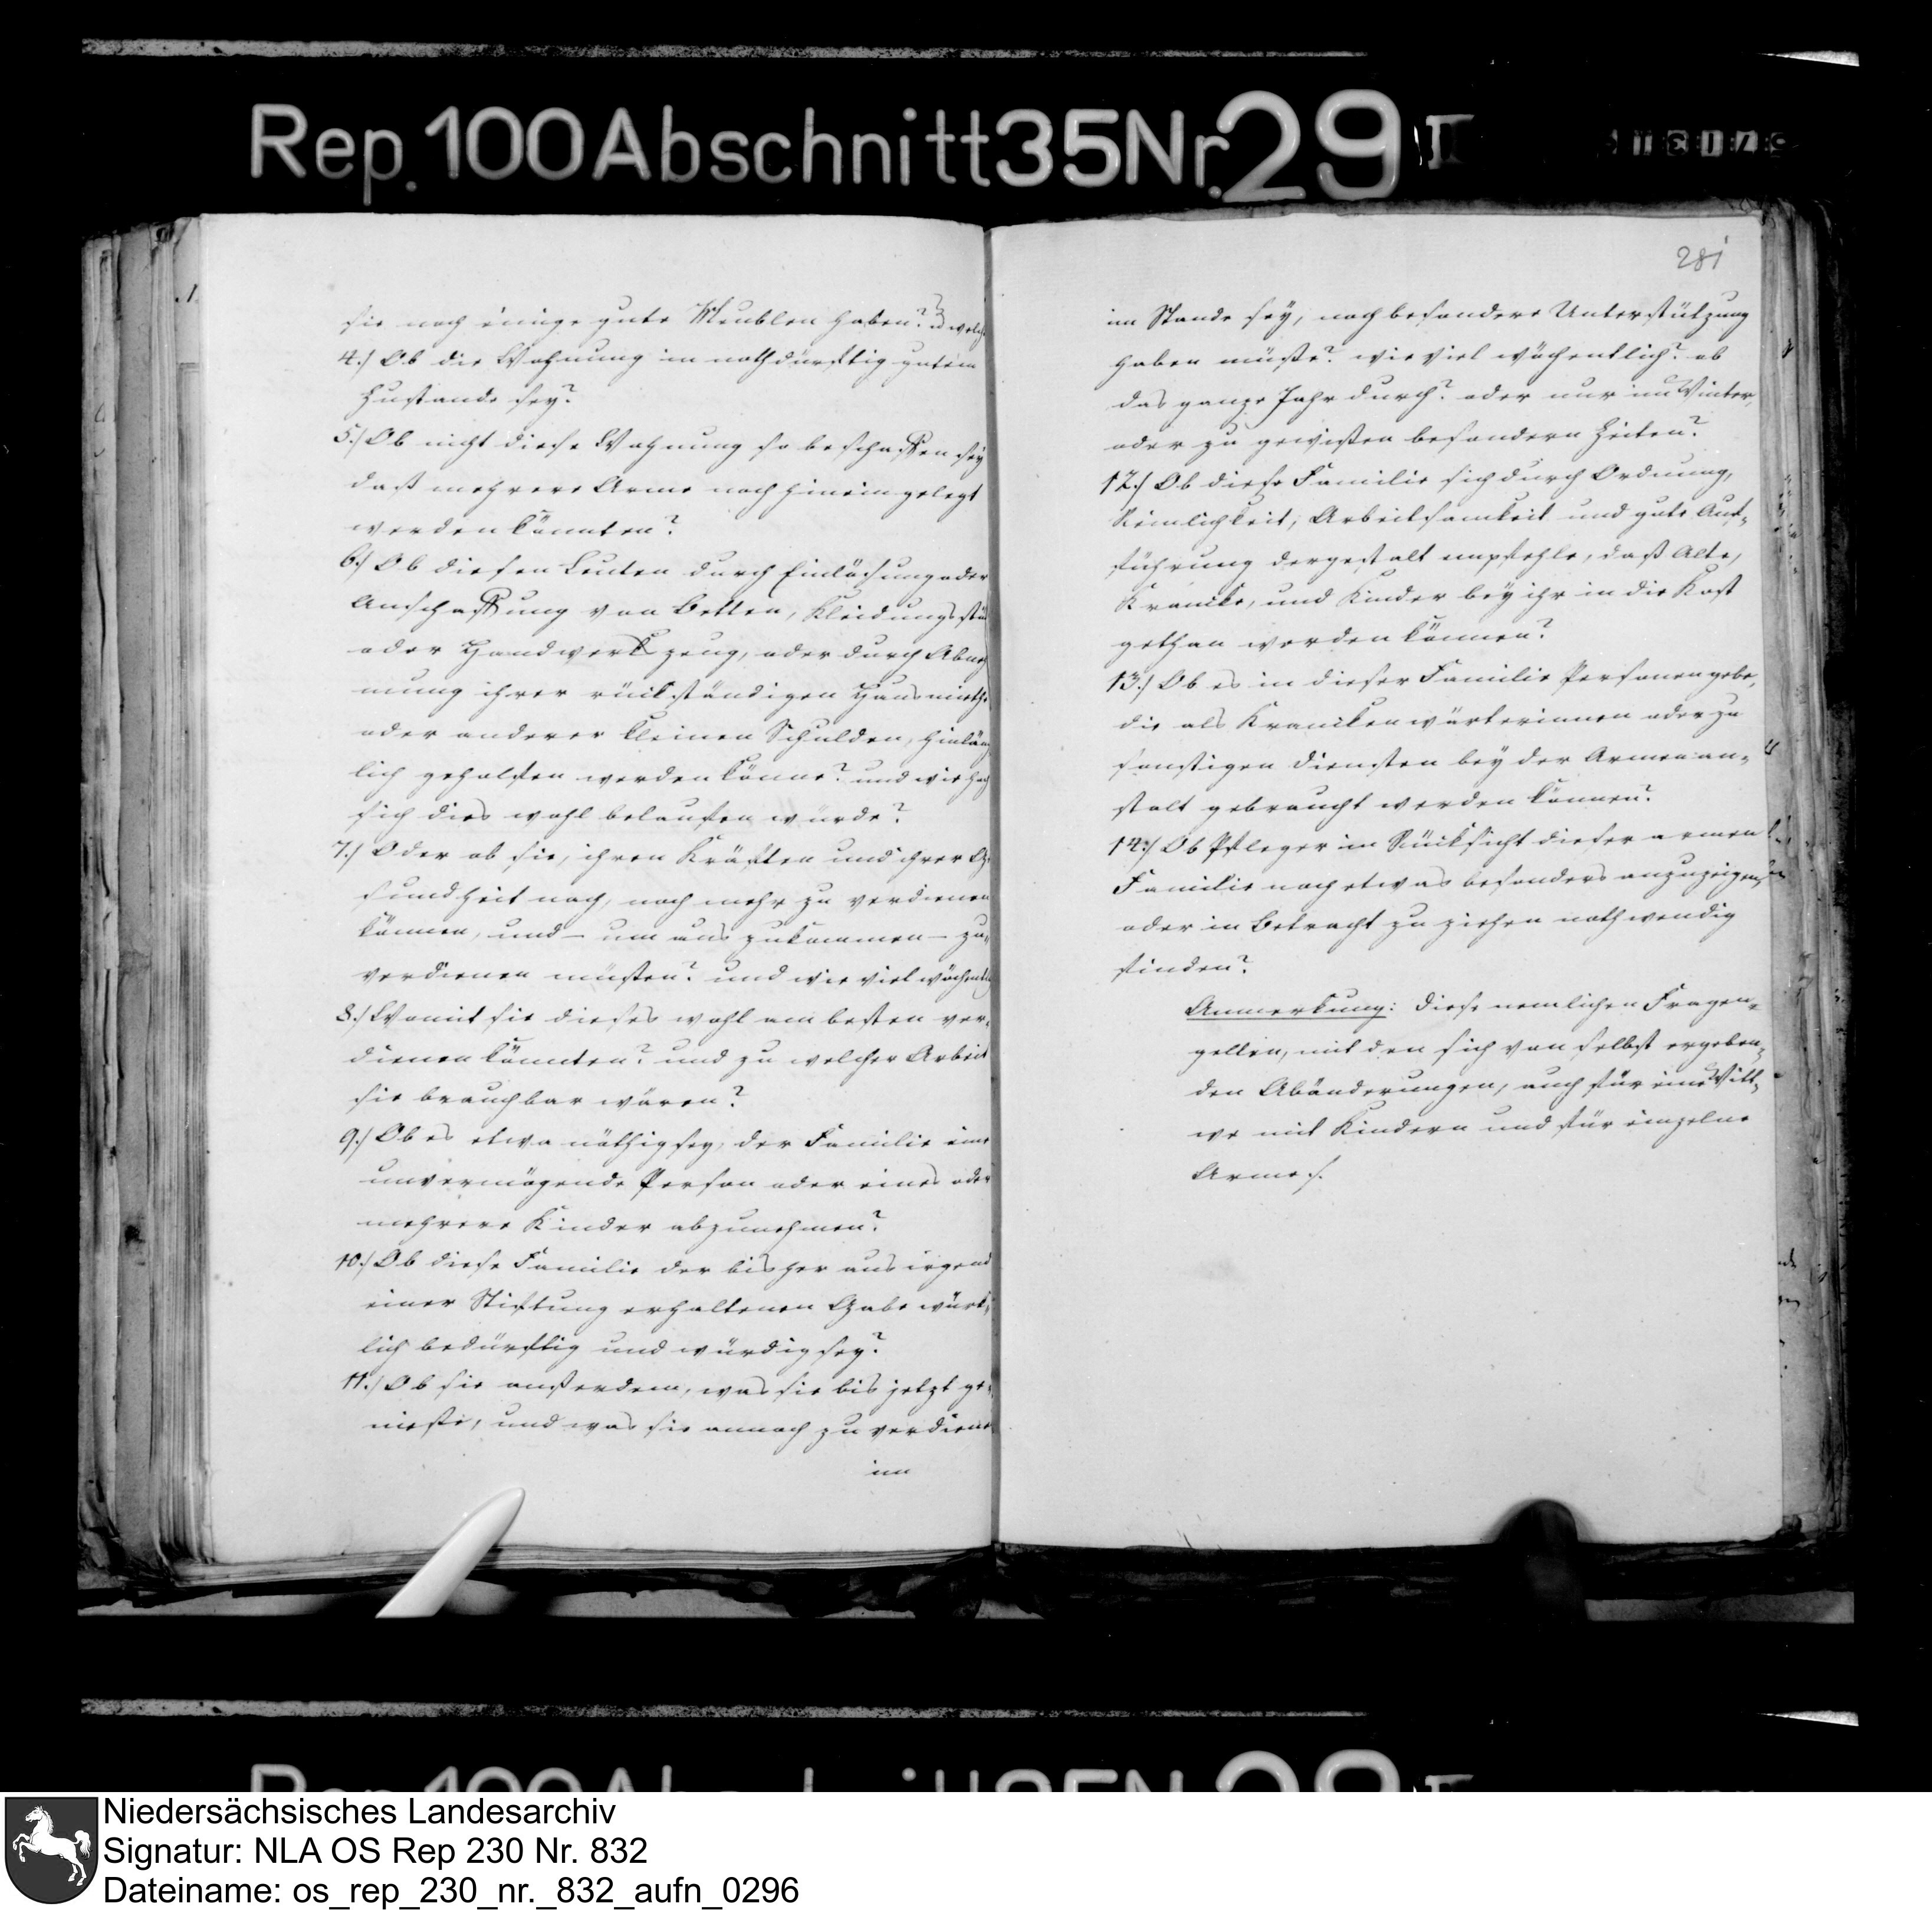 Rep. 100 Abschnitt 35 Nr. 29 I
sie noch einige gute Meublen haben? u welche
4.) Ob die Wohnung in nothdürftig gutem
Zustande sey?
5.) Ob nicht diese Wohnung so beschaffen sey
daß mehrere Arme noch hinein gelegt
werden könnten?
6.) Ob diesen Leuten durch Einlösung oder
Anschaffung von Betten, Kleidungsstü
oder Handwerkzeug, oder durch Abneh
mung ihrer rückständigen Hausmiethe
oder anderer kleinen Schulden, hinläng
lich geholfen werden könne? und wie hoch
sich dies wohl belaufen würde?
7.) Oder ob sie, ihren Kräften und ihrer Ge
sundheit nach, noch mehr zu verdienen
können, und – um aus zukommen – zu
verdienen müsten? und wie viel wöchentlich
8.) Womit sie dieses wohl am besten ver-
dienen könnten? und zu welcher Arbeit
sie brauchbar wären?
9.) Ob es etwa nöthig sey, der Familie eine
unvermögende Person oder eines oder
mehrere Kinder abzunehmen?
10.) Ob diese Familie der bisher aus irgend
einer Stiftung erhaltenen Gabe würk-
lich bedürftig und würdig sey?
11.) Ob sie außerdem, was sie bis jetzt ge-
nieße, und was sie annoch zu verdiene
im
281
im Stande sey, noch besondere Unterstützung
haben müße? wie viel wöchentlich? ob
das ganze Jahr durch? oder nur im Winter,
oder zu gewißen besondern Zeiten?
12.) Ob diese Familie sich durch Ordnung,
Reinlichkeit, Arbeitsamkeit und gute Auf-
führung dergestalt empfehle, daß Alte,
Krancke, und Kinder bey ihr in die Kost
gethan werden können?
13.) Ob es in dieser Familie Personen gebe,
die als Kranckenwärterinnen oder zu
sonstigen Diensten bey der Armenan-
stalt gebraucht werden können?
14.) Ob Pfleger in Rücksicht dieser armen
Familie noch etwas besonders anzuzeigen,
oder in Betracht zu ziehen nothwendig
finden?
Anmerkung: Diese nemlichen Fragen
gelten, mit den sich von selbst ergeben-
den Abänderungen, auch für eine Witt-
we mit Kindern und für einzelne
Arme.
Niedersächsisches Landesarchiv
Signatur: NLA OS Rep 230 Nr. 832
Dateiname: os_rep_230_nr._832_aufn_0296